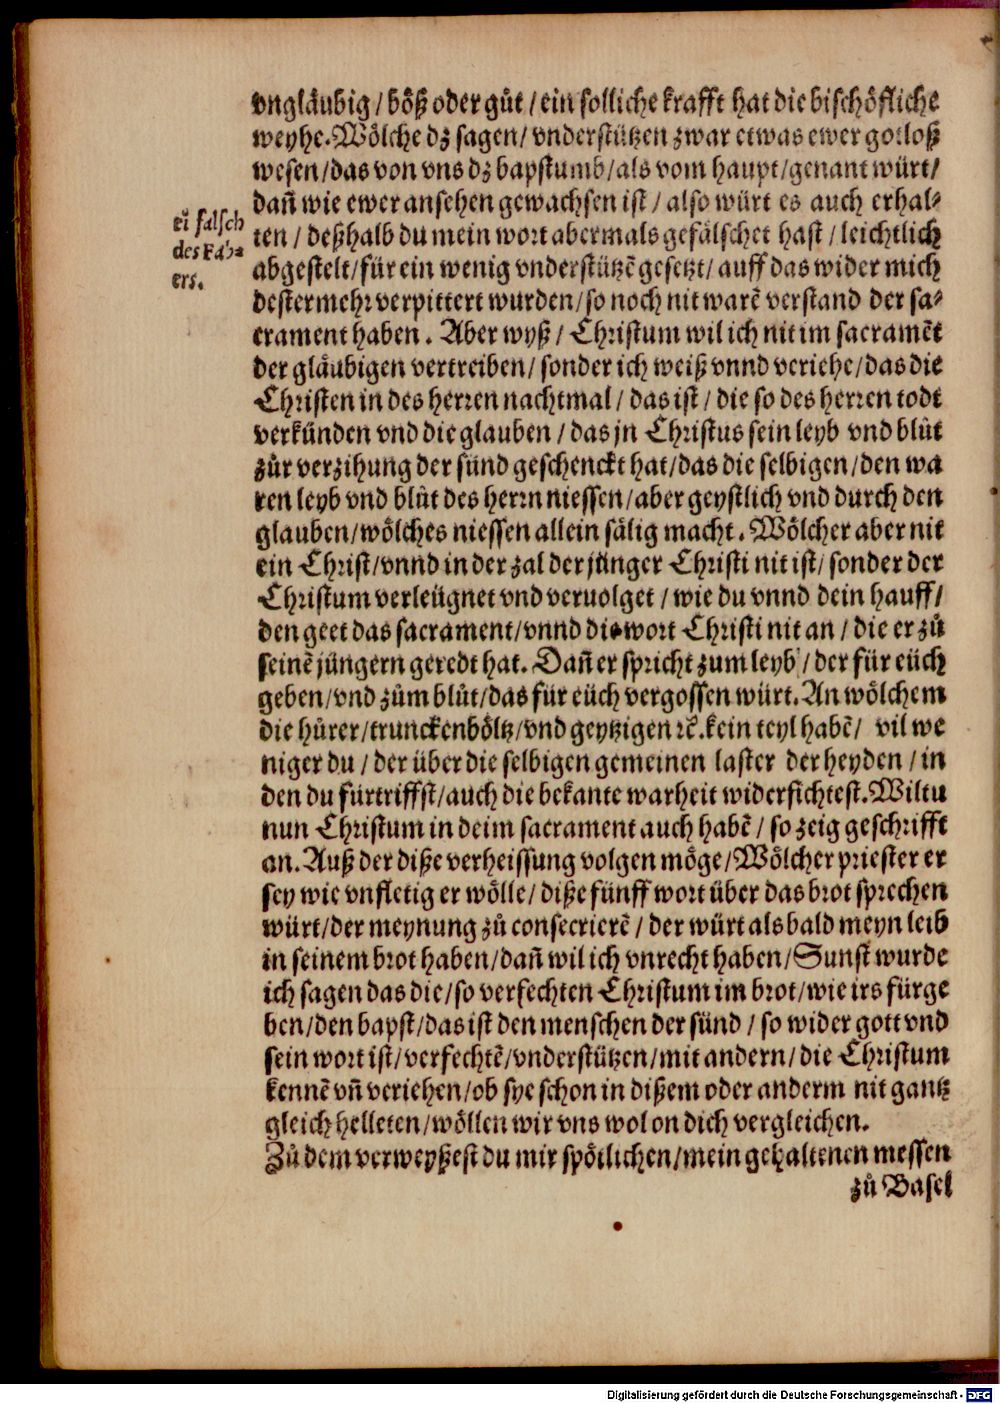 vngläubig / bôß oder gůt / ein solliche krafft hat die bischôfliche
weyhe. Wôlche dz sagen / vnderstützen zwar etwas ewer gotloß
wesen / das von vns dz bapstumb / als vom haupt / genant würt /
dañ wie ewer ansehen gewachsen ist / also würt es auch erhal-
ten / deßhalb du mein wort abermals gefälschet hast / leichtlich
abgestelt / für ein wenig vnderstützẽ gesetzt / auff das wider mich
dester mehr verpittert wurden / so noch nit warẽ verstand der sa-
crament haben. Aber wyß / Christum wil ich nit im sacramẽt
der gläubigen vertreiben / sonder ich weiß vnnd veriehe / das die
Christen in des herren nachtmal / das ist / die so des herren todt
verkünden vnd die glauben / das jn Christus sein leyb vnd blůt
zůr verzihung der sünd geschenckt hat / das die selbigen / den wa
ren leyb vnd blůt des herrn niessen / aber geystlich vnd durch den
glauben / wôlches niessen allein sälig macht. Wôlcher aber nit
ein Christ / vnnd in der zal der jünger Christi nit ist / sonder der
Christum verleügnet vnd veruolget / wie du vnnd dein hauff /
den geet das sacrament / vnnd die wort Christi nit an / die er zů
seinẽ jüngern geredt hat. Dañ er spricht zum leyb / der für eüch
geben / vnd zům blůt / das für eüch vergossen würt. An wôlchem
die hůrer / trunckenbôltz / vnd geytzigen ⁊c̃. kein teyl habẽ / vil we
niger du / der über die selbigen gemeinen laster der heyden / in
den du fürtriffst / auch die bekante warheit widerfichtest. Wiltu
nun Christum in deim sacrament auch habẽ / so zeig geschrifft
an. Auß der diße verheissung volgen môge / Wôlcher priester er
sey wie vnfletig er wôlle / diße fünff wort über das brot sprechen
würt / der meynung zů consecrierẽ / der würt als bald meyn leib
in seinem brot haben / dañ wil ich vnrecht haben / Sunst wurde
ich sagen das die / so verfechten Christum im brot / wie irs fürge
ben / den bapst / das ist den menschen der sünd / so wider gott vnd
sein wort ist / verfechtẽ / vnderstützen / mit andern / die Christum
kennẽ vñ veriehen / ob sye schon in dißem oder anderm nit gantz
gleich helleten / wôllen wir vns wol on dich vergleichen.
Zů dem verweyßest du mir spôtlichen / mein gehaltenen messen
zů Basel
falsch
des
ers.
Digitalisierung gefördert durch die Deutsche Forschungsgemeinschaft - DFG